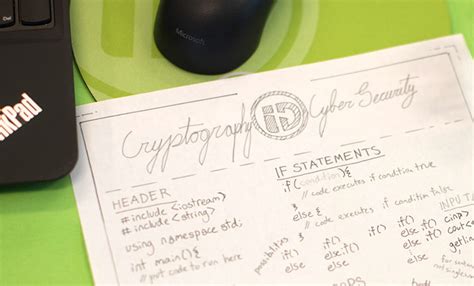 Ctrl
Microsoft
ThinkPad
Cryptography iD Cyber Security
HEADER
#include <iostream>
#include <string>
using namespace std;
int main(){
// put code to run here
IF STATEMENTS
if (condition){
// code executes if condition true
}
else {
// code executes if condition false
}
possibilities
if()
else
if()
else if()
else
if()
else if()
else if()
INPUT
cin>>
getlin
for senten
not singl